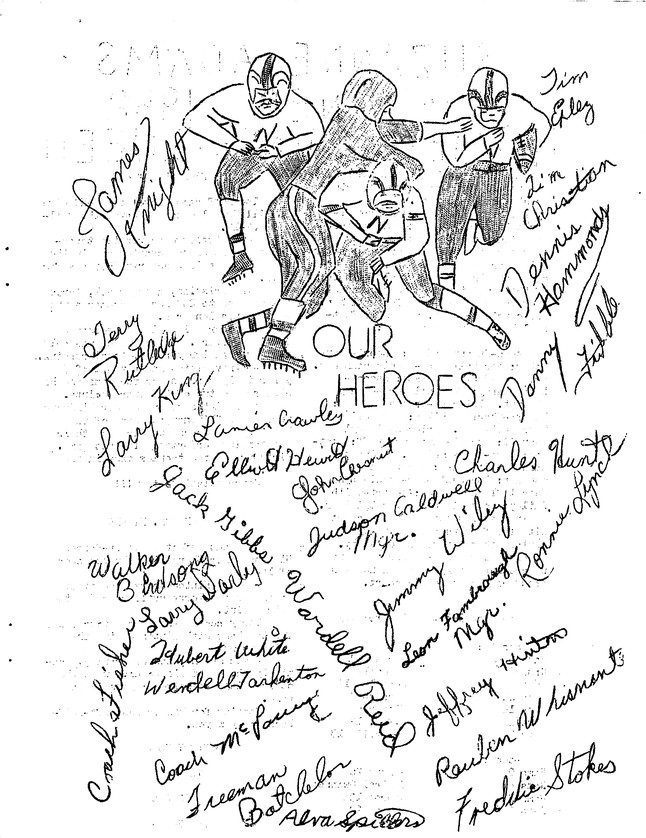 Jim
James
Knight
Jim
Christian
Dennis
Hammonds
Danny
Terry
Rutledge
Larry King
OUR
HEROES
Lanier Crawley
Elliott
John
Charles Hunt
Jack Gibbs
Judson Caldwell
Mgr.
Jimmy Wiley
Ronnie Lynch
Walker
Birdsong
Larry Darby
Wardell Reid
Leon Fambrough
Mgr.
Hubert White
Wendell Tarkenton
Coach Fisher
Jeffrey Hinton
Coach
Reuben Whisnant
Freeman
Batchelor
Alva Spillers
Freddie Stokes